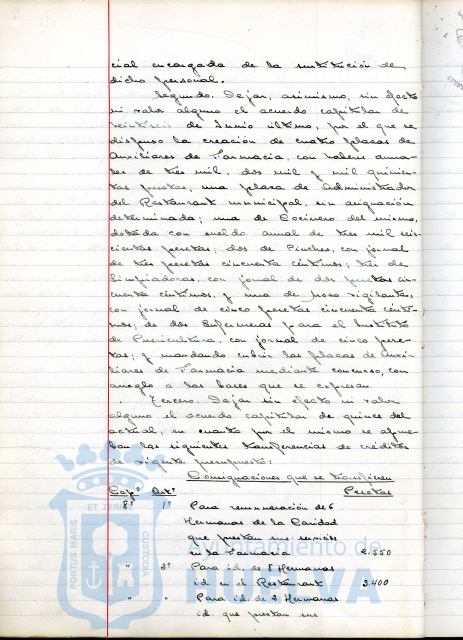 cial encargada de la sustitución de
dicho personal.
Segundo. Dejar, asimismo, sin efecto
ni valor alguno el acuerdo capitular de
veintiseis de Junio último, por el que se
dispuso la creación de cuatro plazas de
Auxiliares de Farmacia, con haberes anua-
les de tres mil, dos mil y mil quinien-
tas pesetas, una plaza de Administrador
del Restaurant municipal, sin asignación
determinada; una de Cocinero del mismo,
dotada con sueldo anual de tres mil seis-
cientas pesetas; dos de Pinches, con jornal
de tres pesetas cincuenta céntimos; tres de
limpiadoras, con jornal de dos pesetas cin-
cuenta céntimos, y una de mozo vigilante,
con jornal de cinco pesetas cincuenta cénti-
mos; de dos Enfermeras para el Instituto
de Puericultura, con jornal de cinco pese-
tas; y mandando cubrir las plazas de auxi-
liares de Farmacia mediante concurso, con
arreglo a las bases que se expresan.
Tercero. Dejar sin efecto ni valor
alguno el acuerdo capitular de quince del
actual, en cuanto por el mismo se aprue-
ban las siguientes transferencias de créditos
de vigente presupuesto:
Consignaciones que se transfieren
Capº Artº Pesetas
8º 1º Para remuneración de 6
Hermanas de la Caridad
que prestan sus servicios
en la Farmacia 2.550
" 3º Para id. de 8 Hermanas
id. en el Restaurant 3.400
" " Para id. de 2 Hermanas
id. que prestan sus
Ayuntamiento de
HUELVA
PORTUS MARIS
ET TERRE
CUSTODIA